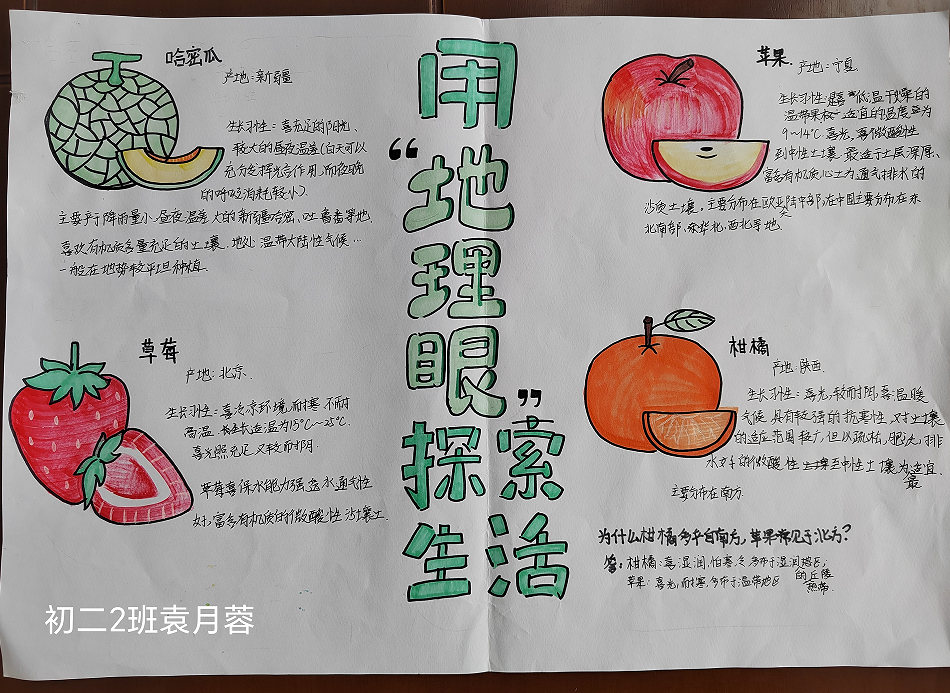 用
“地
理
眼”
探索
生活
哈密瓜
产地:新疆
生长习性:喜充足的阳光、
较大的昼夜温差(白天可以
充分发挥光合作用,而夜晚
的呼吸消耗较小)
主要产于降雨量小、昼夜温差大的新疆哈密、吐鲁番等地.
喜欢有机质含量充足的土壤、地处温带大陆性气候…
一般在地势较平坦种植.
草莓
产地:北京.
生长习性:喜冷凉环境,耐寒不耐
高温.生长适温为15℃~25℃.
喜光照充足又较耐阴.
草莓喜保水能力强,透水通气性
好,富多有机质的微酸性沙壤土.
苹果
产地:宁夏.
生长习性:是喜“低温干燥的
温带果极”适宜的温度为
9~14℃ 喜光,喜微酸性
到中性土壤.最适于土层深厚、
富多有机质心土为通气排水的
沙质土壤,主要分布在欧亚大陆中部,在中国主要分布在东
北南部、华北、西北等地.
柑橘
产地:陕西.
生长习性:喜光,较耐阴,喜温暖
气候.具有较强的抗寒性,对土壤
的适应范围较广,但以疏松,肥沃,排
水好的微酸性土壤至中性土壤为最适宜
主要分布在南方.
为什么柑橘多产自南方,苹果常见于北方?
答:柑橘:喜湿润,怕寒冷,多布于湿润地区的丘陵
热带.
苹果:喜光,耐寒,多布于温带地区
初二2班袁月蓉